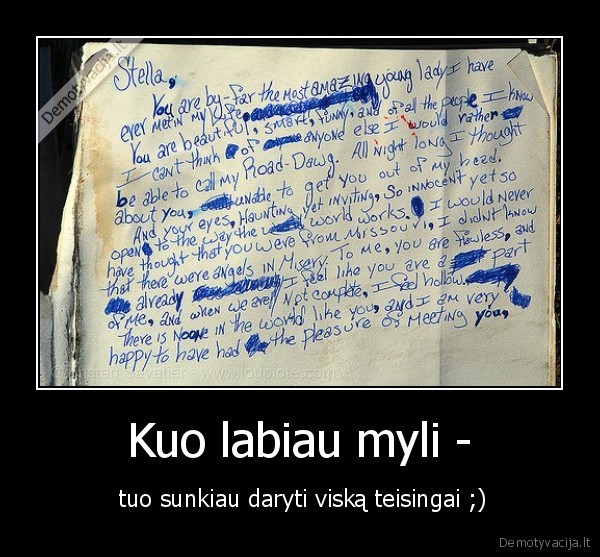 Demotyvacija.lt
Stella,
You are by far the most amazing young lady I have
ever met in my life.
You are beautiful, smart, funny, and of all the people I know
I can't think of anyone else I would rather
be able to call my Road-Dawg. All night long I thought
about you, unable to get you out of my head.
And your eyes, Haunting yet inviting, So innocent yet so
open to the way the world works. I would Never
have thought that you were from Missouri, I didn't know
that there were angels in Misery. To me, you are flawless, and
already I feel like you are a part
of me, and when we aren't Not complete, I feel hollow.
There is Noone in the world like you, and I am very
happy to have had the pleasure of Meeting you,
Christian Savatier - www.loupiote.com
Kuo labiau myli -
tuo sunkiau daryti viską teisingai ;)
Demotyvacija.lt